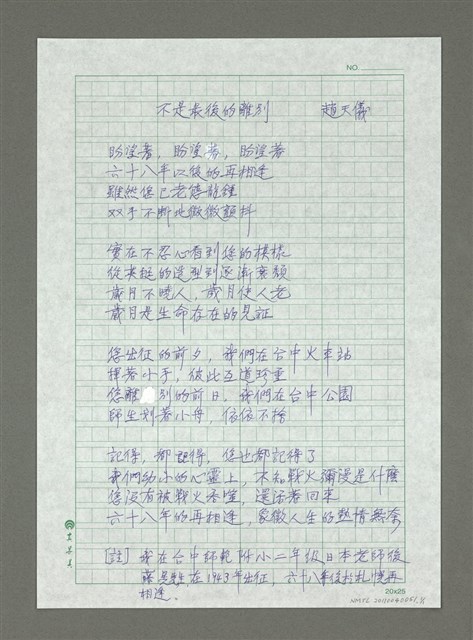 NO.
不是最後的離別 趙天儀
盼望著，盼望著，盼望著
六十八年以後的再相逢
雖然您已老態龍鍾
双手不斷地微微顫抖
實在不忍心看到您的模樣
從英挺的造型到逐漸衰頹
歲月不饒人，歲月使人老
歲月是生命存在的見証
您出征的前夕，我們在台中火車站
揮著小手，彼此互道珍重
您離別的前日，我們在台中公園
師生划著小舟，依依不捨
記得，都記得，您也都記得了
我們幼小的心靈上，不知戰火瀰漫是什麼
您沒有被戰火吞噬，還活著回來
六十八年的再相逢，象徵人生的熱情無奈
〔註〕我在台中師範附小二年級日本老師後
在1943年出征，六十八年後於札幌再
相逢。
20x25